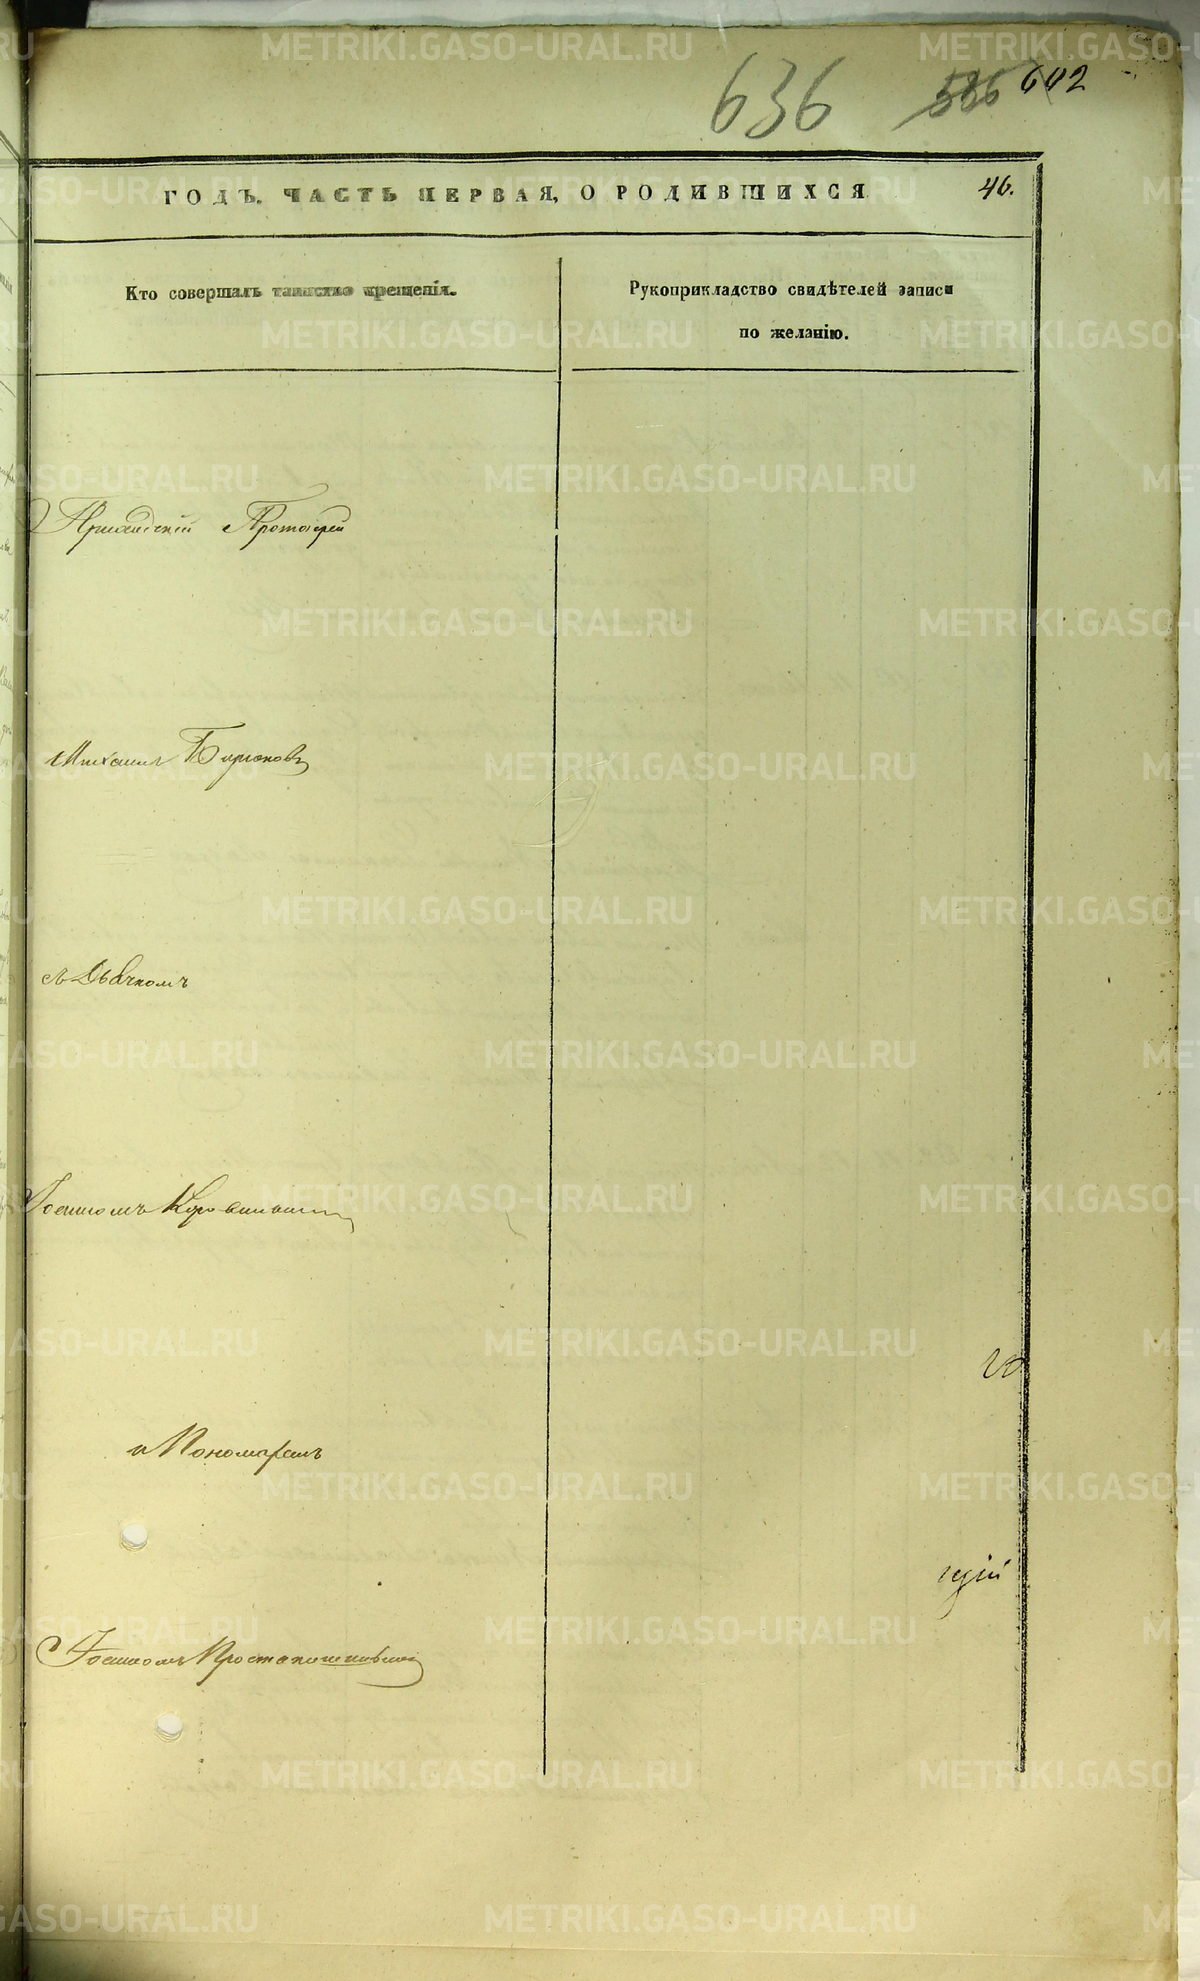 636 586 602
ГОДЪ. ЧАСТЬ ПЕРВАЯ, О РОДИВШИХСЯ 46.
Кто совершалъ таинство крещенія.
Рукоприкладство свидѣтелей записи
по желанію.
Приходскій Протоіерей
Михаилъ Бирюковъ
съ Дьячкомъ
Іоанномъ
и Пономаремъ
щій
Іоанномъ
METRIKI.GASO-URAL.RU